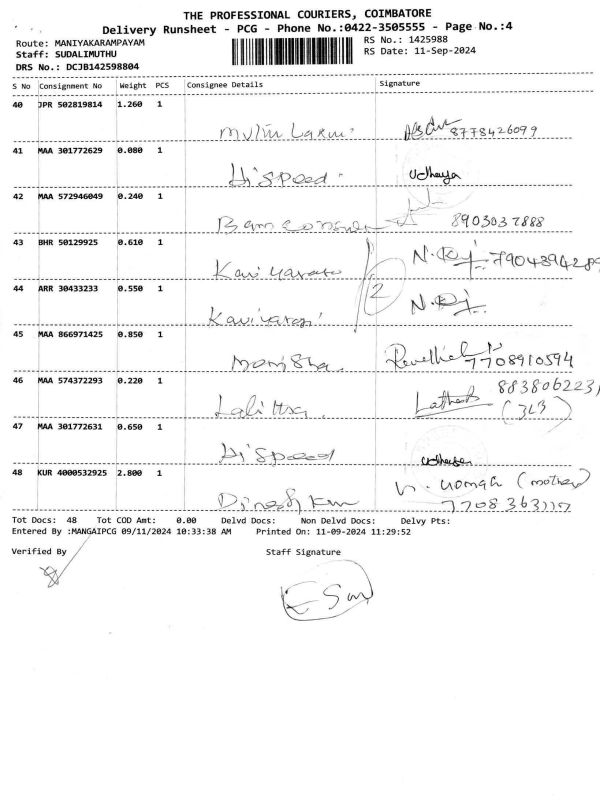 THE PROFESSIONAL COURIERS, COIMBATORE
Delivery Runsheet - PCG - Phone No.:0422-3505555 - Page No.:4
Route: MANIYAKARAMPAYAM
RS No.: 1425988
Staff: SUDALIMUTHU
RS Date: 11-Sep-2024
DRS No.: DCJB142598804
S No Consignment No Weight PCS Consignee Details Signature
40 JPR 502819814 1.260 1
8778426099
41 MAA 301772629 0.080 1
Hispeed. Udhaya
42 MAA 572946049 0.240 1
8903037888
43 BHR 50129925 0.610 1
N. 790439428
44 ARR 30433233 0.550 1
2
N.
45 MAA 866971425 0.850 1
Monisha 7708910594
46 MAA 574372293 0.220 1
883806223
Lalitha. (3L3)
47 MAA 301772631 0.650 1
Hispeed Udhaya
48 KUR 4000532925 2.800 1
(mother)
Dinesh Kum
Tot Docs: 48 Tot COD Amt: 0.00 Delvd Docs: Non Delvd Docs: Delvy Pts:
Entered By :MANGAIPCG 09/11/2024 10:33:38 AM Printed On: 11-09-2024 11:29:52
Verified By Staff Signature